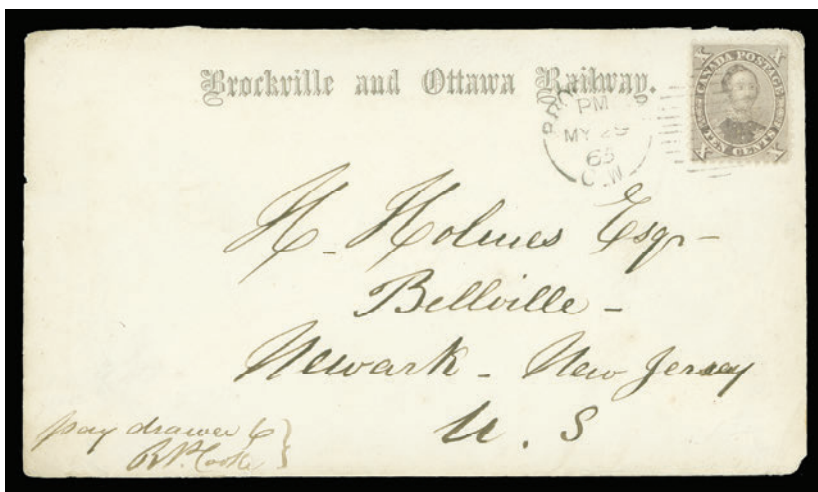 Brockville and Ottawa Railway.
CANADA POSTAGE
TEN CENTS
X X X X
PM
MY 25
65
C.W.
H. Holmes Esqr -
Bellville -
Newark - New Jersey
U. S
pay drawer 6
R P. Cooke